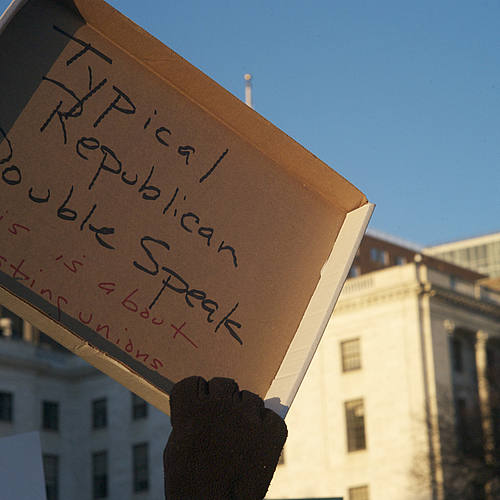 Typical
Republican
Double Speak
is about
unions